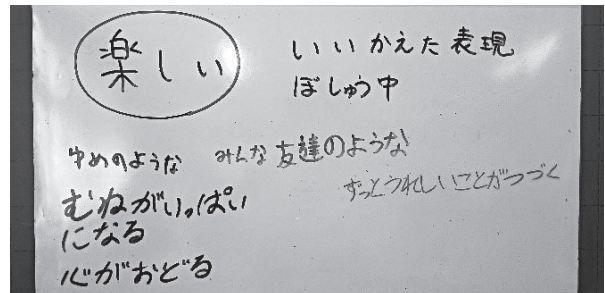 楽しい
いいかえた表現
ぼしゅう中
ゆめのような
みんな友達のような
ずっとうれしいことがつづく
むねがいっぱい
になる
心がおどる